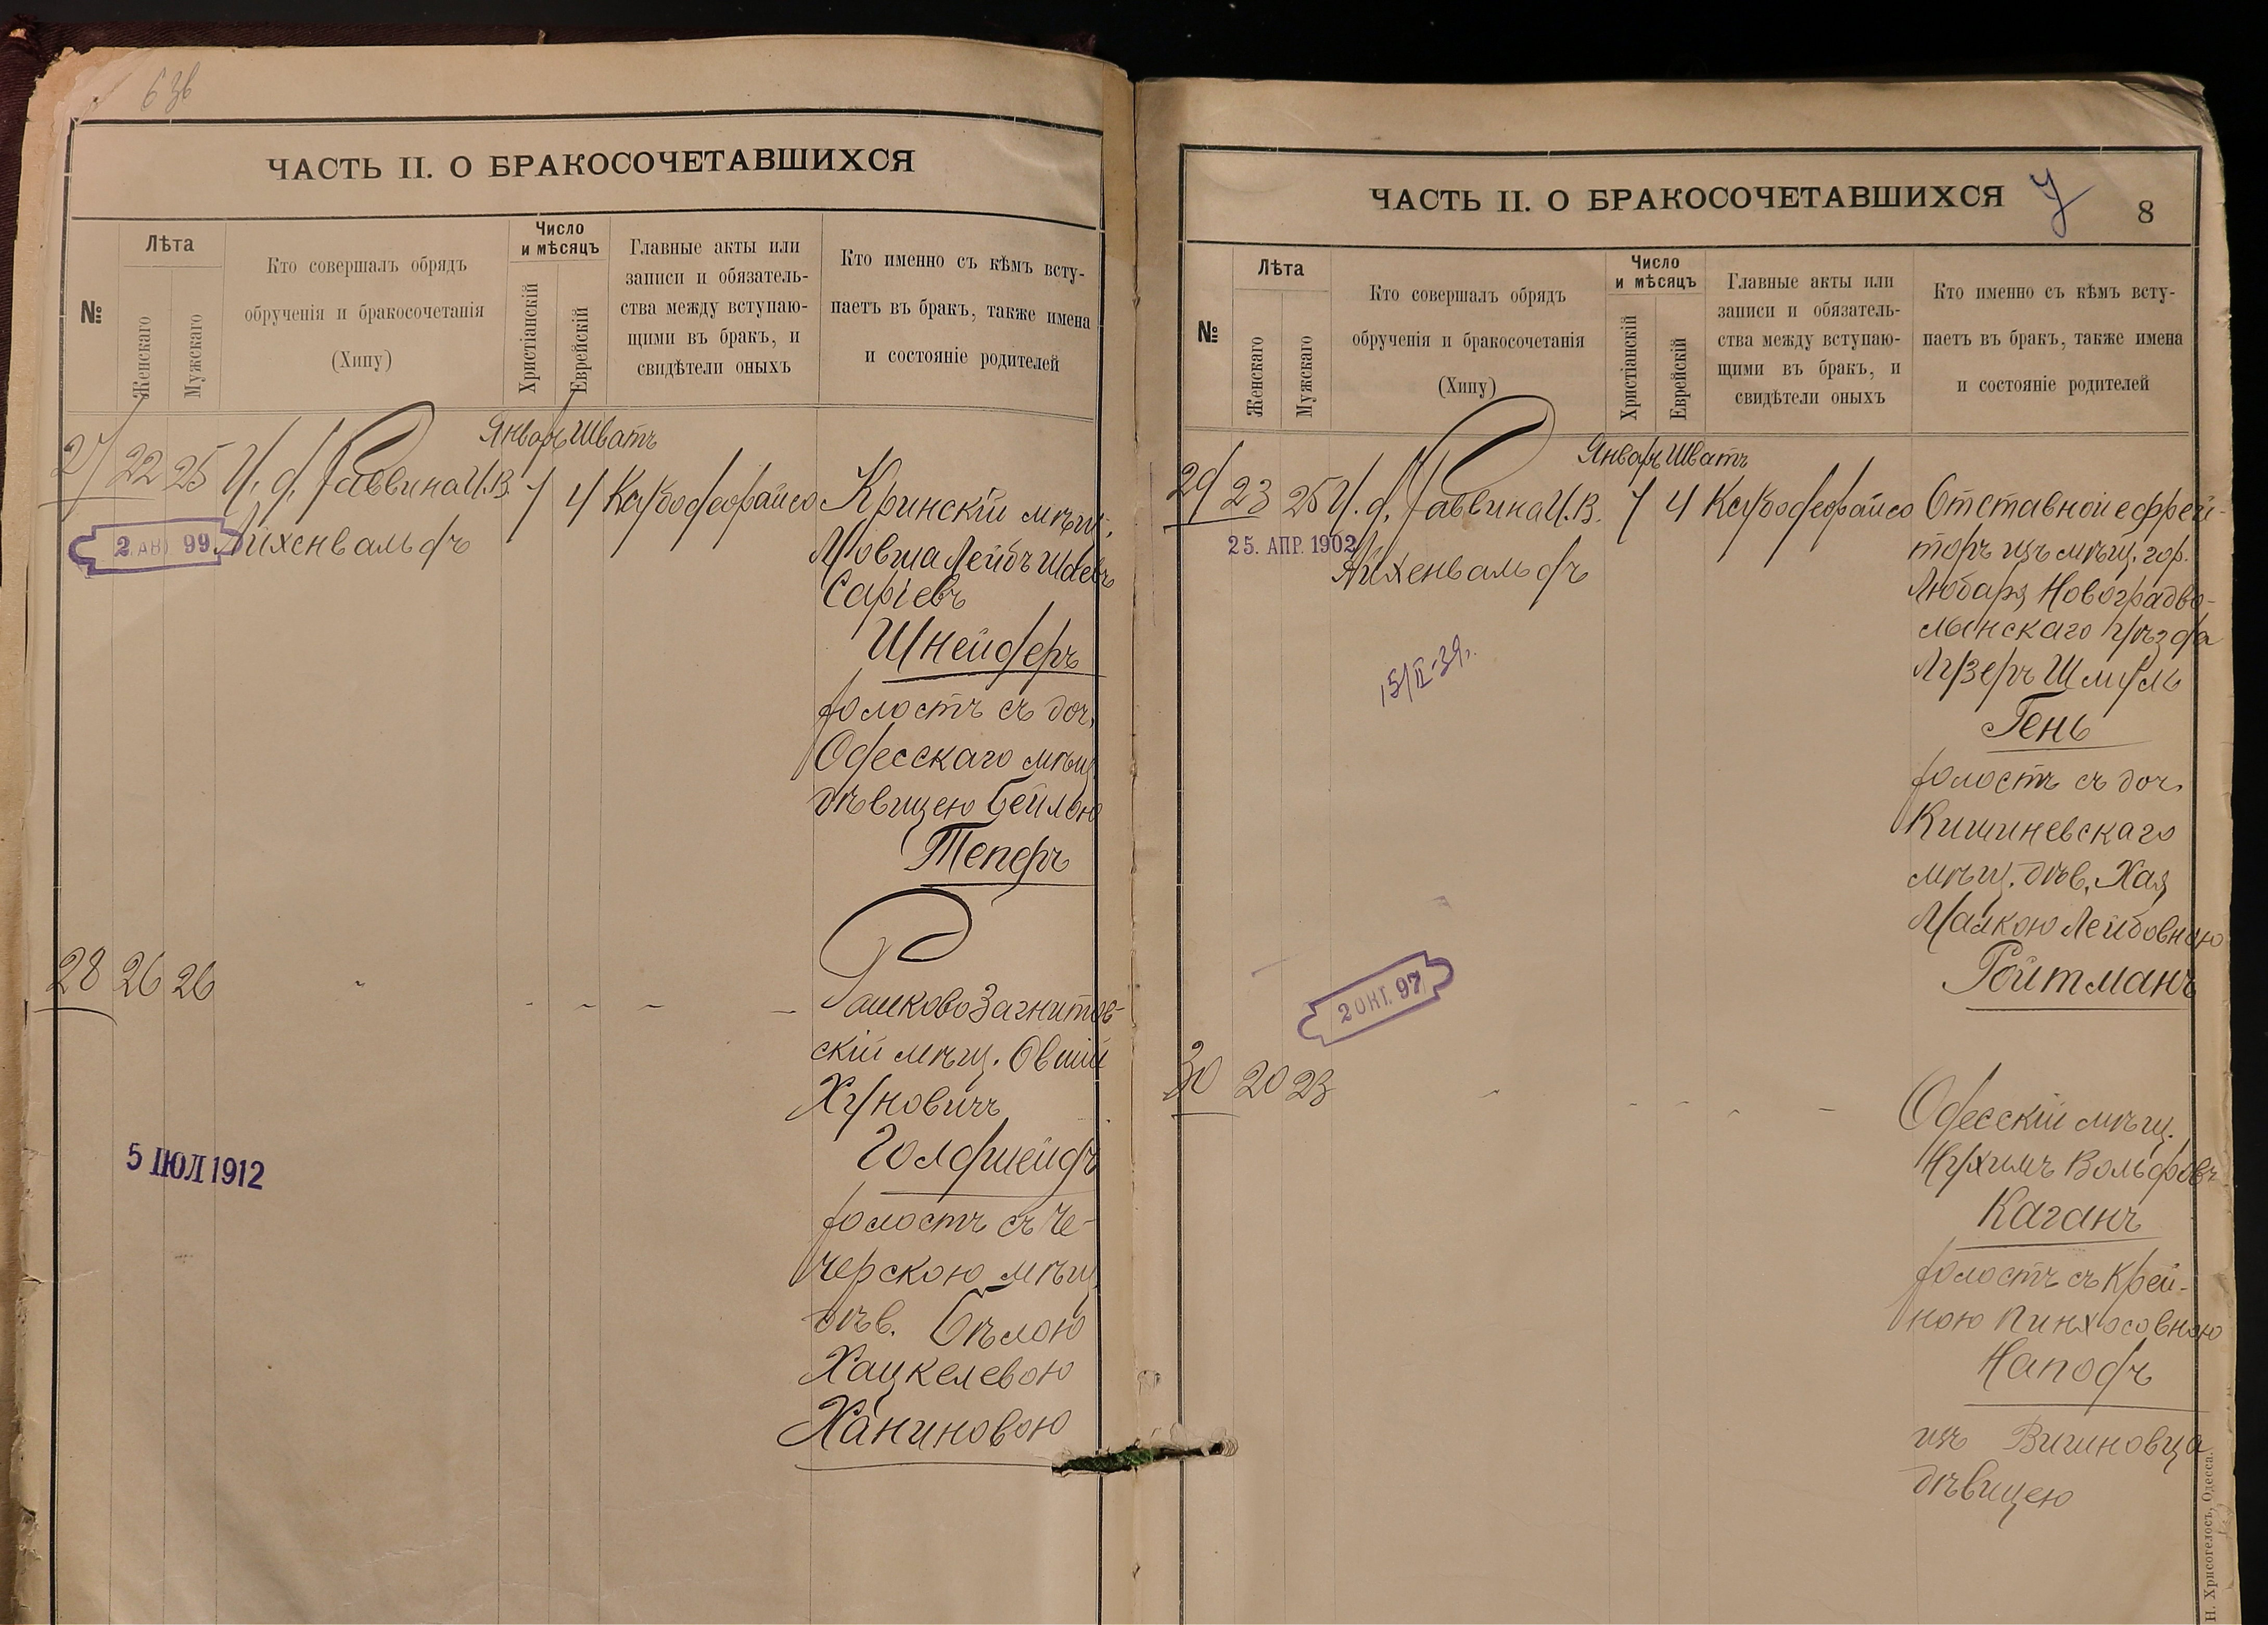 63б
ЧАСТЬ II. О БРАКОСОЧЕТАВШИХСЯ
№
Лѣта
Женскаго
Мужскаго
Кто совершалъ обрядъ
обрученія и бракосочетанія
(Хипу)
Число
и мѣсяцъ
Христіанскій
Еврейскій
Главные акты или
записи и обязатель-
ства между вступаю-
щими въ бракъ, и
свидѣтели оныхъ
Кто именно съ кѣмъ всту-
паетъ въ бракъ, также имена
и состояніе родителей
Январь Шватъ
27 22 25 И. д. Раввина И.В. 7 4
Айхенвальдъ
2 АВГ 99
Кринскій мѣщ.
Мовша Лейбъ Шаевъ
Саріевъ
Шнейдеръ
холостъ съ доч.
Одесскаго мѣщ.
дѣвицею Бейлою
Теперъ
28 26 26 - - - - -
Рашково Загнитов-
скій мѣщ. Овшій
Хуновичъ
Голдшейдъ
холостъ съ Че-
черскою мѣщ.
дѣв. Бѣлою
Хацкелевою
Ханиновою
5 ІЮЛ 1912
ЧАСТЬ II. О БРАКОСОЧЕТАВШИХСЯ
8
№
Лѣта
Женскаго
Мужскаго
Кто совершалъ обрядъ
обрученія и бракосочетанія
(Хипу)
Число
и мѣсяцъ
Христіанскій
Еврейскій
Главные акты или
записи и обязатель-
ства между вступаю-
щими въ бракъ, и
свидѣтели оныхъ
Кто именно съ кѣмъ всту-
паетъ въ бракъ, также имена
и состояніе родителей
Январь Шватъ
29 23 25 И. д. Раввина И.В. 7 4
Айхенвальдъ
25. АПР. 1902
15/II-39г.
Отставной ефрей-
торъ изъ мѣщ. гор.
Любаря Новоградво-
лынскаго уѣзда
Лузеръ Шмуль
Гень
холостъ съ доч.
Кишиневскаго
мѣщ. дѣв. Хая
Малкою Лейбовною
Ройтманъ
2 ОКТ. 97
30 20 23 - - - - -
Одесскій мѣщ.
Нухимъ Вольфовъ
Каганъ
холостъ съ Крей-
ною Пинхосовною
Наподъ
изъ Вишновца
дѣвицею
Н. Хрисогелосъ, Одесса.